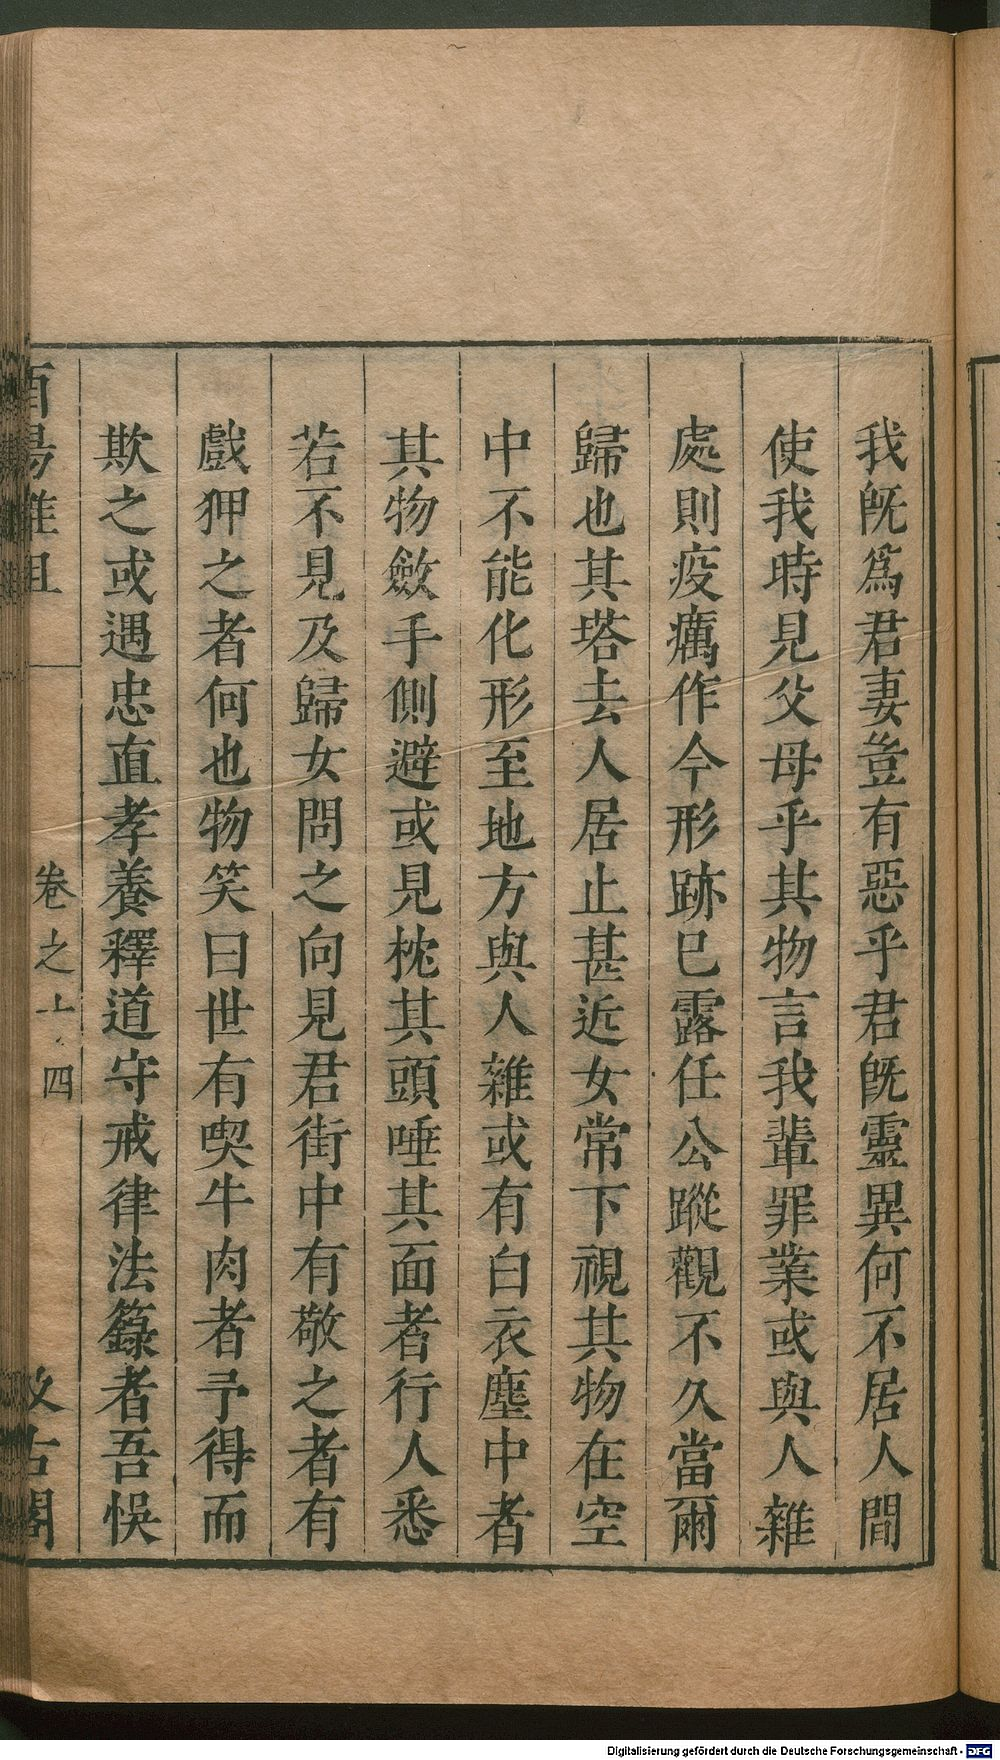 我旣爲君妻豈有惡乎君旣靈異何不居人間
使我時見父母乎其物言我輩罪業或與人雜
處則疫癘作今形跡已露任公蹤觀不久當爾
歸也其塔去人居止甚近女常下視其物在空
中不能化形至地方與人雜或有白衣塵中者
其物斂手側避或見枕其頭唾其面者行人悉
若不見及歸女問之向見君街中有敬之者有
戲狎之者何也物笑曰世有喫牛肉者予得而
欺之或遇忠直孝養釋道守戒律法籙者吾悞
酉陽雜俎
卷之十四
汲古閣
Digitalisierung gefördert durch die Deutsche Forschungsgemeinschaft - DFG